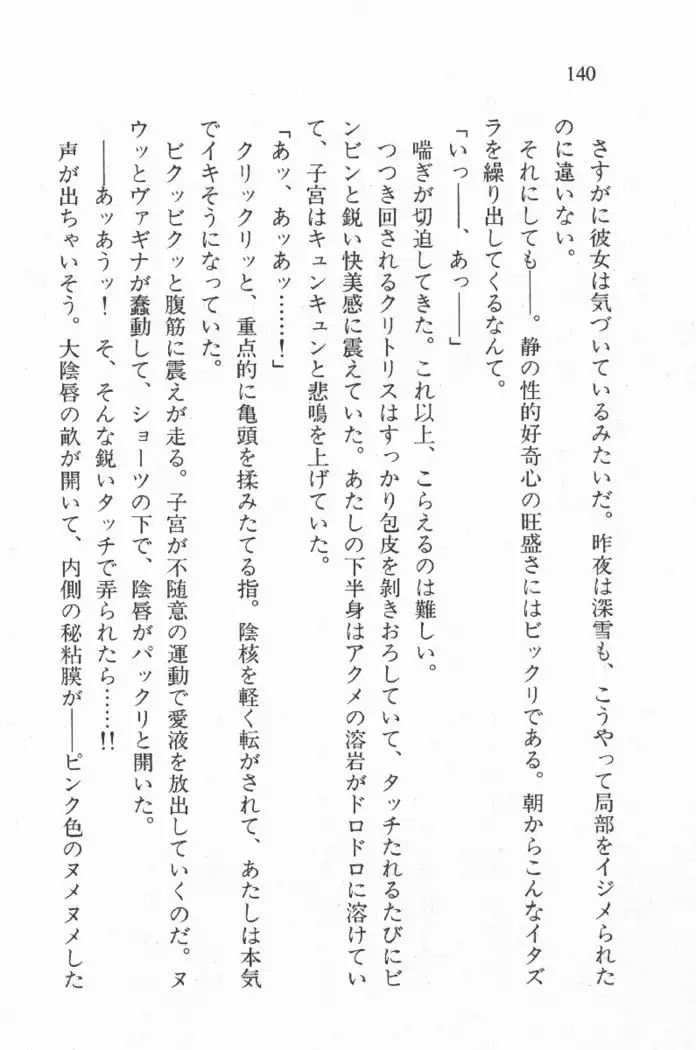 140
さすがに彼女は気づいているみたいだ。昨夜は深雪も、こうやって局部をイジメられた
のに違いない。
それにしても――。静の性的好奇心の旺盛さにはビックリである。朝からこんなイタズ
ラを繰り出してくるなんて。
「いっ――、あっ――」
喘ぎが切迫してきた。これ以上、こらえるのは難しい。
つつき回されるクリトリスはすっかり包皮を剝きおろしていて、タッチたれるたびにビ
ンビンと鋭い快美感に震えていた。あたしの下半身はアクメの溶岩がドロドロに溶けてい
て、子宮はキュンキュンと悲鳴を上げていた。
「あッ、あッあッ……！」
クリックリッと、重点的に亀頭を揉みたてる指。陰核を軽く転がされて、あたしは本気
でイキそうになっていた。
ビクッビクッと腹筋に震えが走る。子宮が不随意の運動で愛液を放出していくのだ。ヌ
ウッとヴァギナが蠢動して、ショーツの下で、陰唇がパックリと開いた。
――あッあうッ！　そ、そんな鋭いタッチで弄られたら……!!
声が出ちゃいそう。大陰唇の畝が開いて、内側の秘粘膜が――ピンク色のヌメヌメした